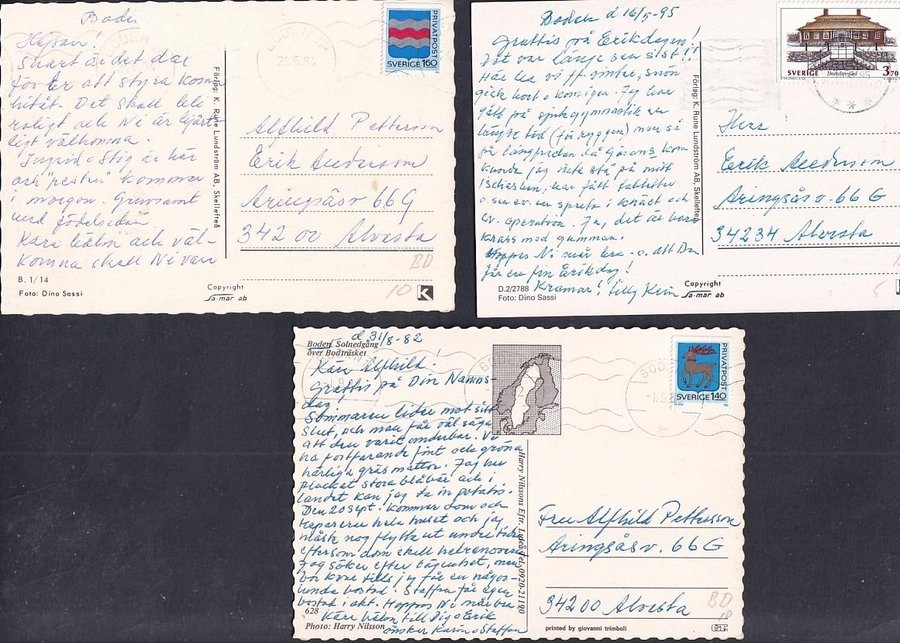 Boden
Hejsan!
Snart är det dags
för Er att styra kosan
hitåt. Det skall bli
roligt och Ni är hjärt-
ligt välkomna.
Ingrid o Stig är här
och "resten" kommer
i morgon. Gemensamt
med födelsedan.
Kära hälsn och väl-
komna skall Ni vara
B. 1/14
Foto: Dino Sassi
Förlag: K. Rune Lundström AB, Skellefteå
Copyright
sa-mar ab
K
PRIVATPOST
SVERIGE 160
Alfhild Pettersson
Erik Andersson
Aringsåsv 66 G
342 00 Alvesta
BD
10
Boden d 16/5-95
Grattis på Erikdagen!
Det var länge sen sist!!
Här har vi ff. vinter, snön
gick bort o kom igen. Jag har
gått på sjukgymnastik en
längre tid (för ryggen) men så
på långfredan då Görans kom
kunde jag inte stå på mitt
ischiasben, har fått tabletter
o sen ev. en spruta i knäet och
ev. operation. Ja, det är bara
krass med gumman.
Hoppas Ni mår bra o. att Du
får en fin Erikdag!
Kramar! Karin
D.2/2788
Foto: Dino Sassi
Förlag: K. Rune Lundström AB, Skellefteå
Copyright
sa-mar ab
SVERIGE 3,70
Herr
Erik Andersson
Aringsåsv. 66 G
34234 Alvesta
5
Boden. Solnedgång
över Bodträsket
d 31/8-82
Kära Alfhild!
Grattis på Din Namns-
dag
Sommaren lider mot sitt
slut, och man får väl säga
att den varit underbar. Vi
ha fortfarande fint och gröna
härliga gräsmattor. Jag har
plockat stora blåbär och i
landet kan jag ta in potatis.
Den 20 sept. kommer dom och
reparerar hela huset och jag
måste nog flytta ut under tiden
eftersom dom skall helrenovera
Jag söker efter lägenhet, men
bor kvar tills jag får en någor-
lunda bostad. Staffan får egen
bostad i okt. Hoppas Ni mår bra
Kära hälsn till Dig o Erik
önskar Karin o Staffan
628
Photo: Harry Nilsson
Harry Nilssons Eftr. Luleå Tel. 0920-21190
PRIVATPOST
SVERIGE 140
Fru Alfhild Pettersson
Aringsåsv. 66 G
34200 Alvesta
BD
10
printed by giovanni trimboli